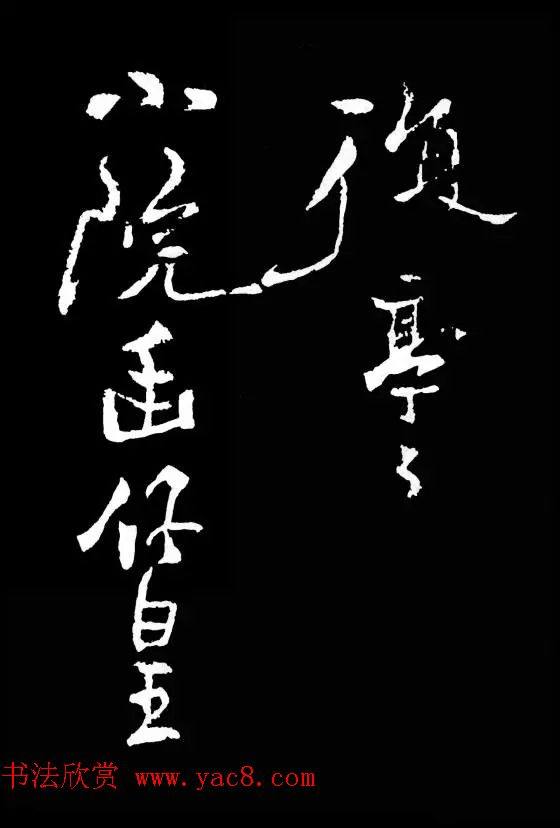 復亭々
小院皇
书法欣赏 www.yac8.com